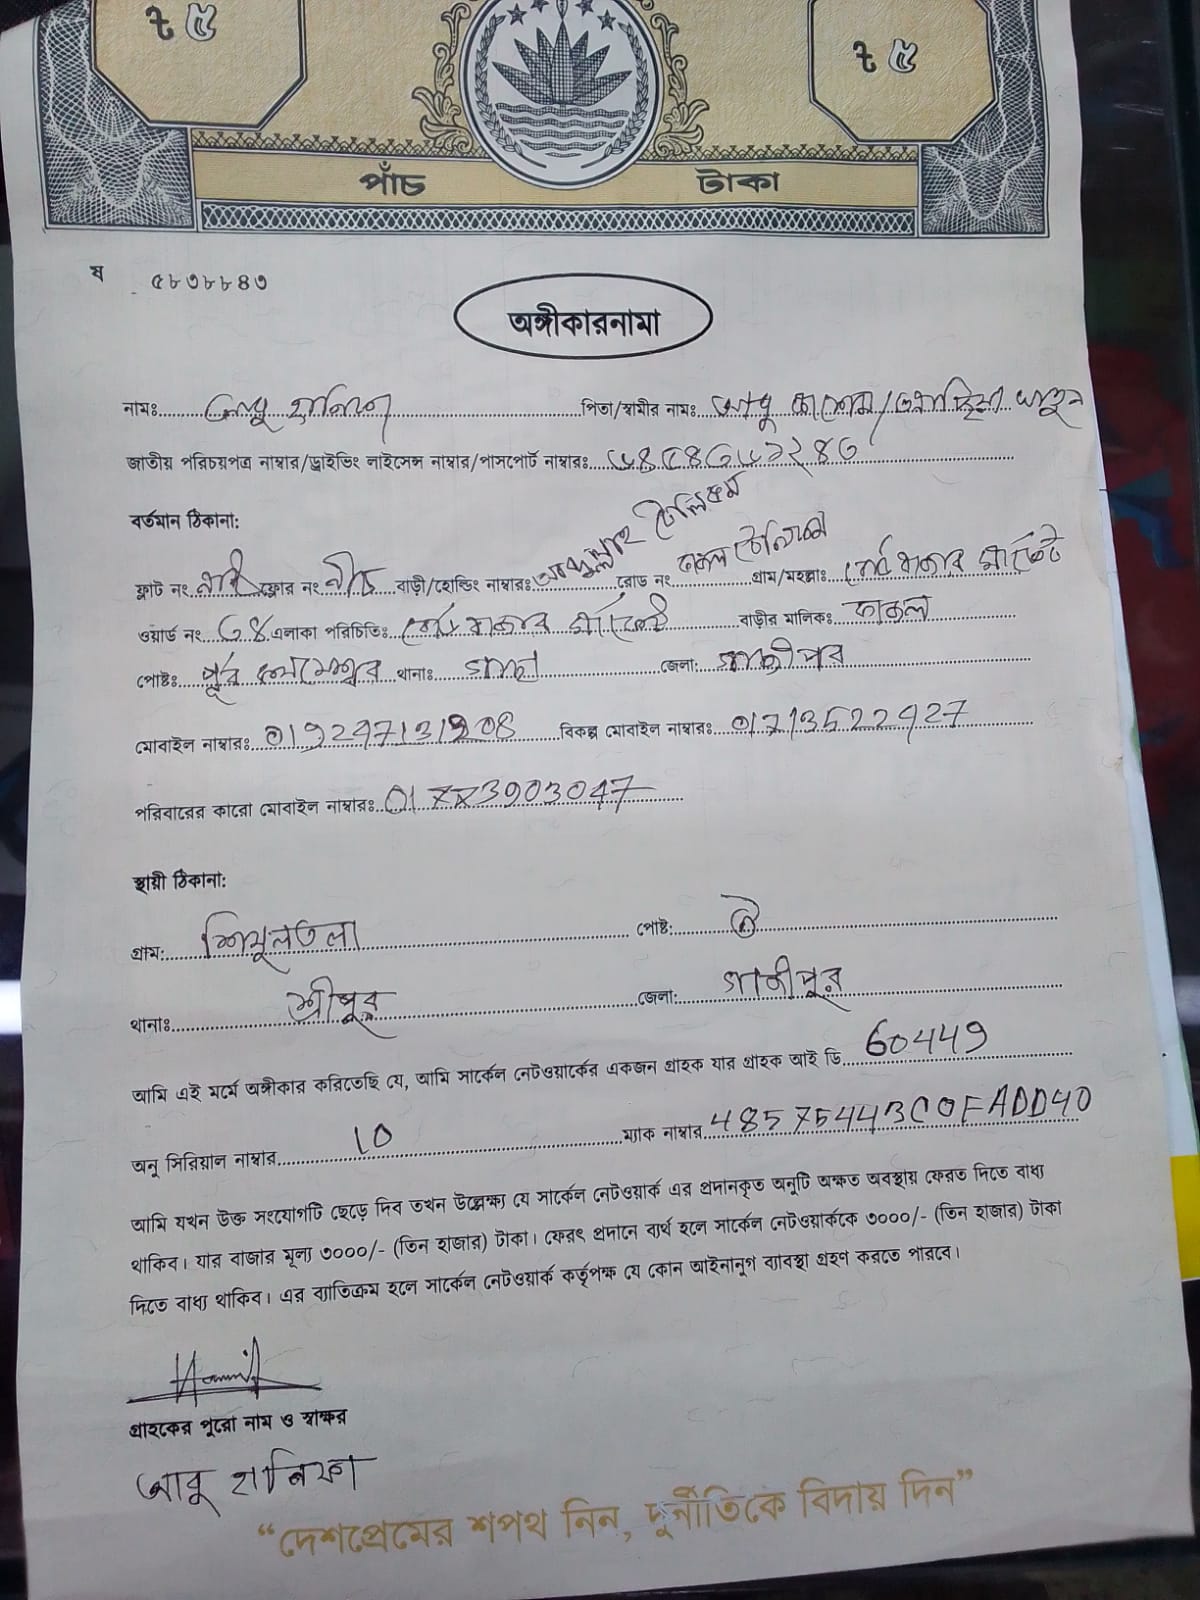 ৳ ৫ ৳ ৫
পাঁচ টাকা
ষ ৫৮৩৮৮৪৩
অঙ্গীকারনামা
নামঃ আবু হানিফা পিতা/স্বামীর নামঃ আবু কাশেম/ খাতুন
জাতীয় পরিচয়পত্র নাম্বার/ড্রাইভিং লাইসেন্স নাম্বার/পাসপোর্ট নাম্বারঃ
বর্তমান ঠিকানা:
ফ্লাট নং ফ্লোর নং নীচ বাড়ী/হোল্ডিং নাম্বারঃ টেলিকম রোড নং টেলিকম গ্রাম/মহল্লাঃ বাজার মার্কেট
ওয়ার্ড নং ৩৪ এলাকা পরিচিতিঃ বাজার মার্কেট বাড়ীর মালিকঃ
পোষ্টঃ পূর্ব থানাঃ গাছা জেলা: গাজীপুর
মোবাইল নাম্বারঃ বিকল্প মোবাইল নাম্বারঃ 01713522927
পরিবারের কারো মোবাইল নাম্বারঃ
স্থায়ী ঠিকানা:
গ্রাম: শিমুলতলা পোষ্ট: ঐ
থানাঃ শ্রীপুর জেলা: গাজীপুর
আমি এই মর্মে অঙ্গীকার করিতেছি যে, আমি সার্কেল নেটওয়ার্কের একজন গ্রাহক যার গ্রাহক আই ডি 60449
অনু সিরিয়াল নাম্বার 10 ম্যাক নাম্বার 485754443C0FADD40
আমি যখন উক্ত সংযোগটি ছেড়ে দিব তখন উল্লেক্ষ্য যে সার্কেল নেটওয়ার্ক এর প্রদানকৃত অনুটি অক্ষত অবস্থায় ফেরত দিতে বাধ্য
থাকিব। যার বাজার মূল্য ৩০০০/- (তিন হাজার) টাকা। ফেরৎ প্রদানে ব্যর্থ হলে সার্কেল নেটওয়ার্ককে ৩০০০/- (তিন হাজার) টাকা
দিতে বাধ্য থাকিব। এর ব্যাতিক্রম হলে সার্কেল নেটওয়ার্ক কর্তৃপক্ষ যে কোন আইনানুগ ব্যাবস্থা গ্রহণ করতে পারবে।
গ্রাহকের পুরো নাম ও স্বাক্ষর
আবু হানিফা
“দেশপ্রেমের শপথ নিন, দুর্নীতিকে বিদায় দিন”